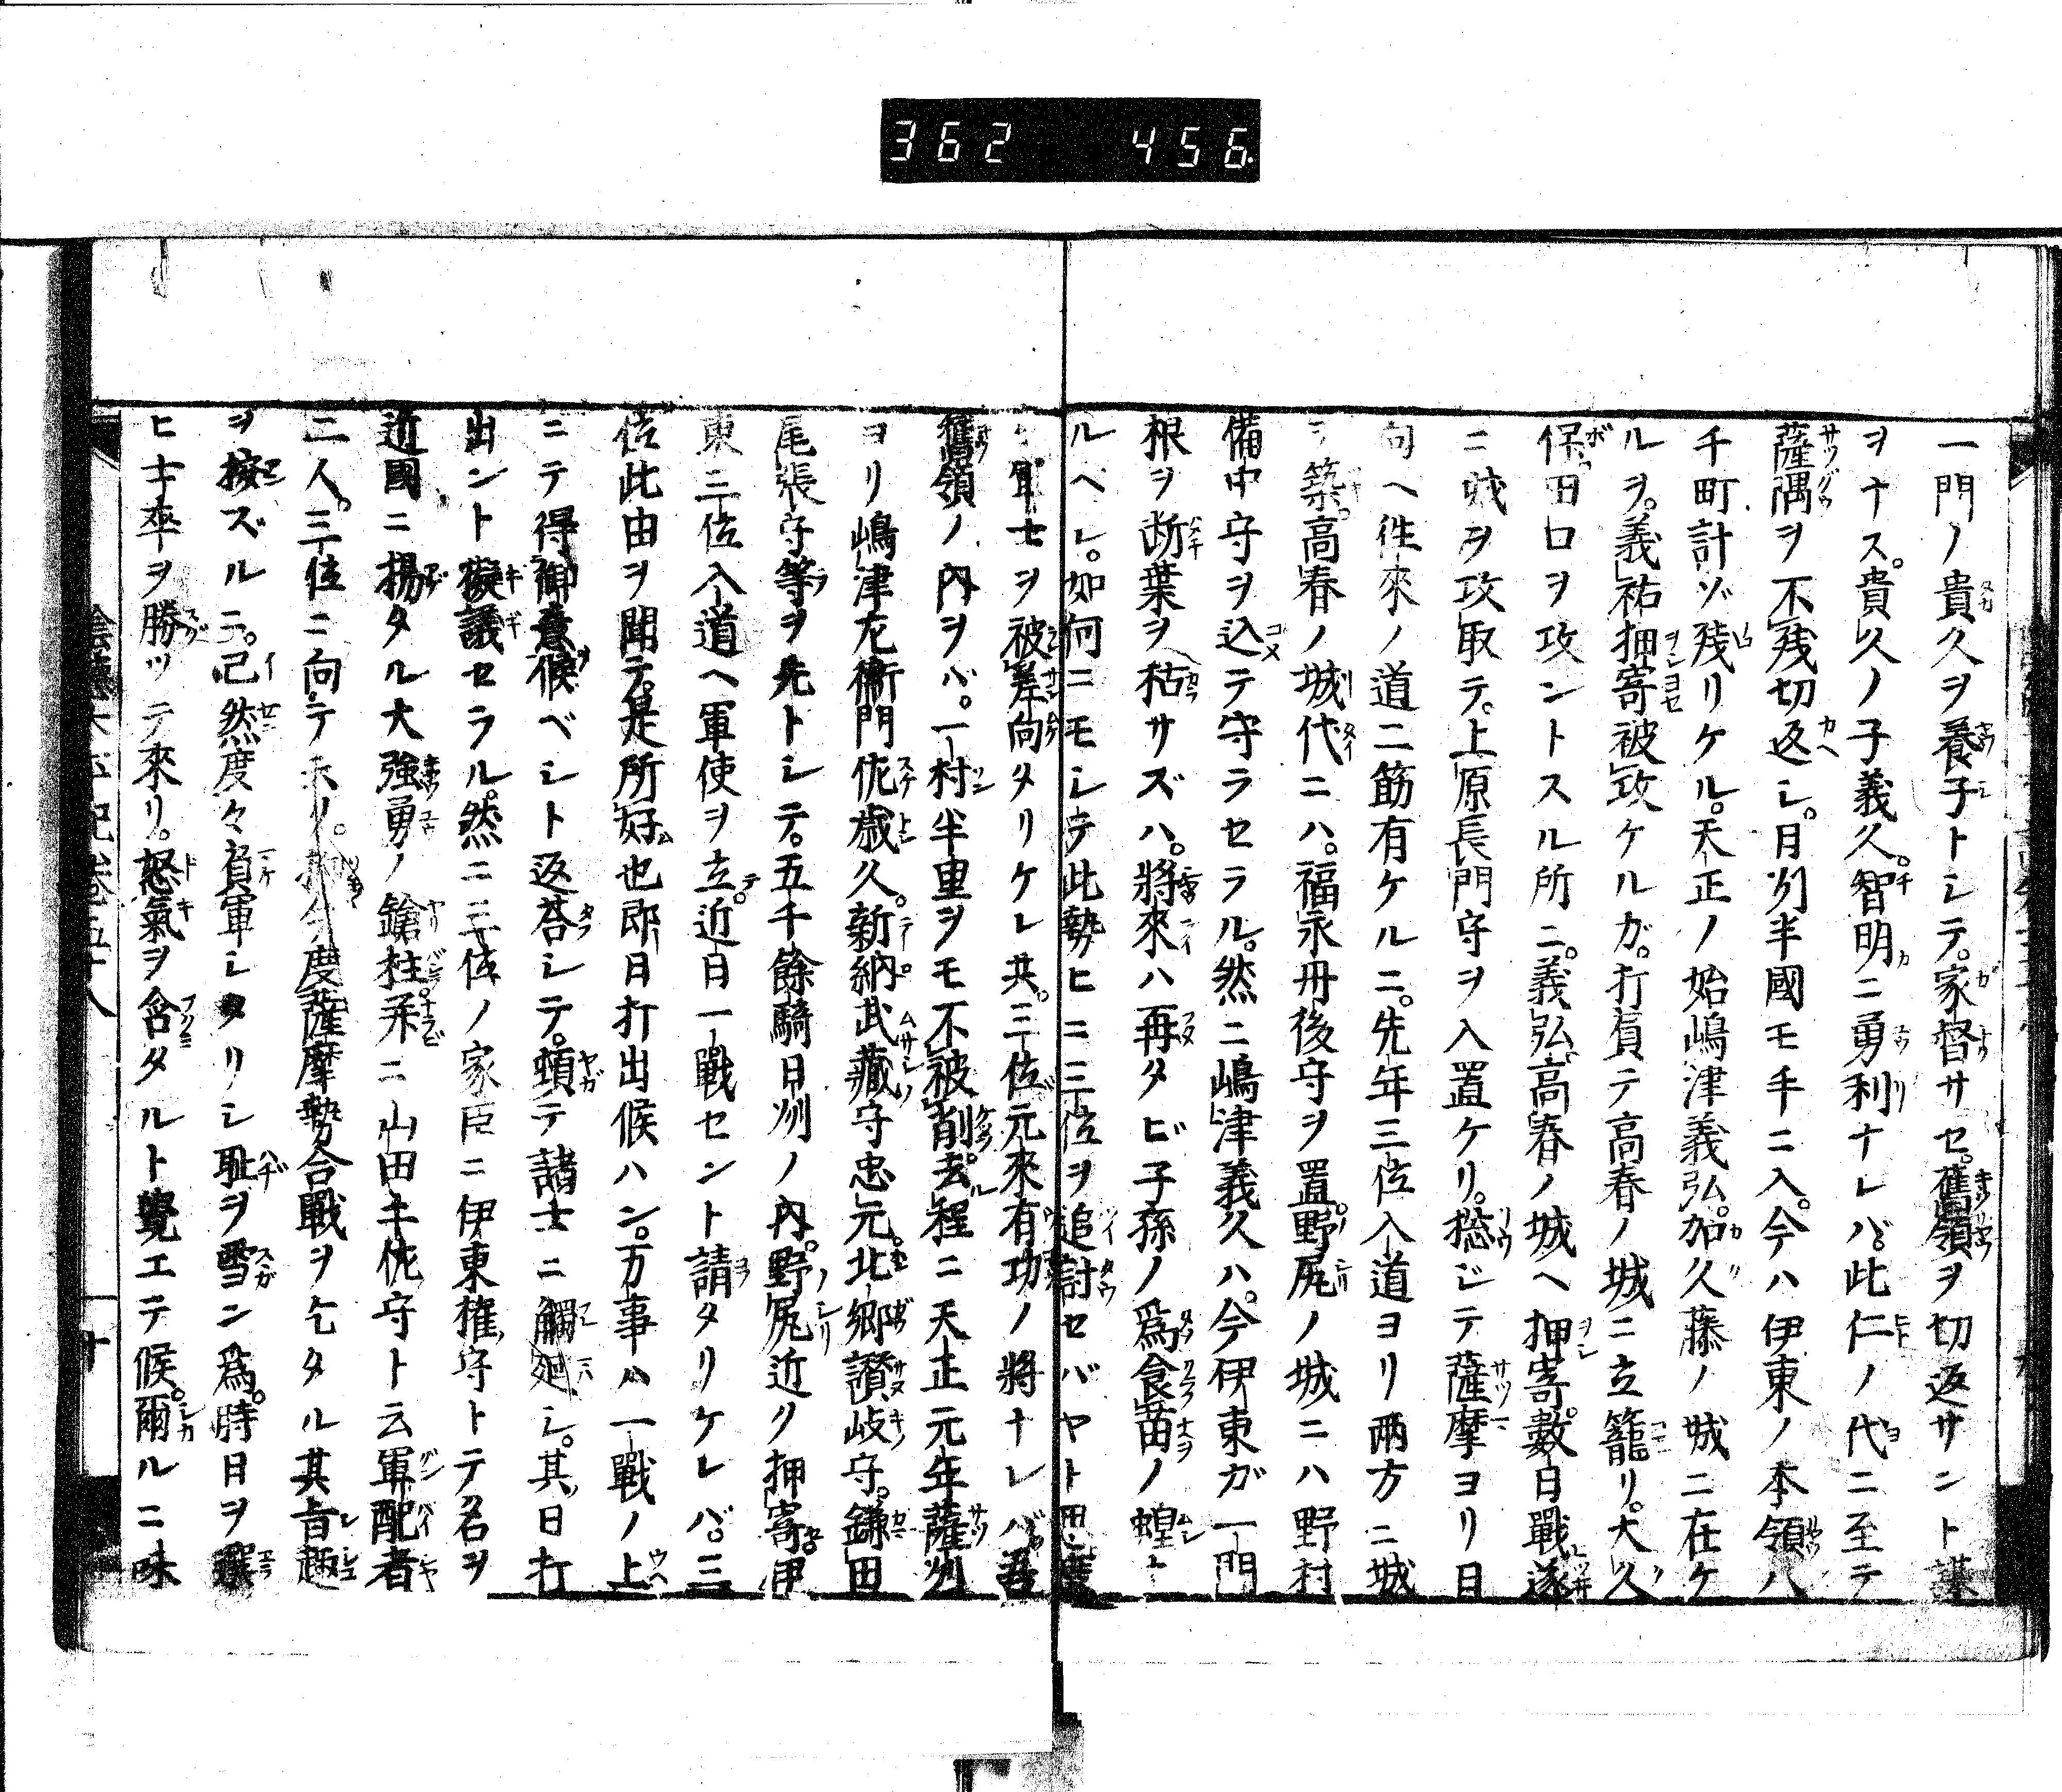 362 456
一門ノ貴久ヲ養子トシテ。家督サセ。舊領ヲ切返サント謀
ヲナス。貴久ノ子義久。智明ニ勇利ナレバ。此仁ノ代ニ至テ
薩隅ヲ不残切返シ。日州半國モ手ニ入。今ハ伊東ノ本領八
千町計ゾ残リケル。天正ノ始嶋津義弘。加久藤ノ城ニ在ケ
ルヲ。義祐押寄被攻ケルガ。打負テ高春ノ城ニ立籠リ。大久
保田口ヲ攻ントスル所ニ。義弘高春ノ城ヘ押寄。數日戰逐
ニ城ヲ攻取テ。上原長門守ヲ入置ケリ。捴ジテ薩摩ヨリ日
向ヘ徃來ノ道二筋有ケルニ。先年三位入道ヨリ兩方ニ城
ヲ築。高春ノ城代ニハ。福永丹後守ヲ置。野尻ノ城ニハ野村
備中守ヲ込テ守ラセラル。然ニ嶋津義久ハ。今伊東ガ一門
根ヲ断葉ヲ枯サズハ。將來ハ再タビ子孫ノ爲食苗ノ蝗ト
ルベシ。如何ニモシテ此勢ヒニ三位ヲ追討セバヤト思慮
軍士ヲ被差向タリケレ共。三位元來有功ノ將ナレバ。吾
舊領ノ内ヲバ。一村半里ヲモ不被削去程ニ天正元年薩州
ヨリ嶋津左衞門佐歳久。新納武藏守忠元。北郷讃岐守。鎌田
尾張守等ヲ先トシテ。五千餘騎日州ノ内。野尻近ク押寄。伊
東三位入道ヘ軍使ヲ立。近日一戰セント請タリケレバ。三
位此由ヲ聞テ。是所好也即日打出候ハン。万事ハ一戰ノ上
ニテ得御意候ベシト返荅シテ。頓テ諸士ニ觸廻シ。其日打
出ント擬議セラル。然ニ三位ノ家臣ニ伊東權守トテ名ヲ
近國ニ揚タル大強勇ノ鎗柱。并ニ山田土佐守ト云軍配者
二人。三位ニ向テ申ノ。今度薩摩勢合戰ヲ乞タル其旨趣
ヲ按ズルニ。已然度々負軍シタリシ耻ヲ雪ン爲。時日ヲ選
ヒ士卒ヲ勝ッテ來リ。怒氣ヲ含タルト覺エテ候。爾ルニ味
陰德太平記卷五十八 十